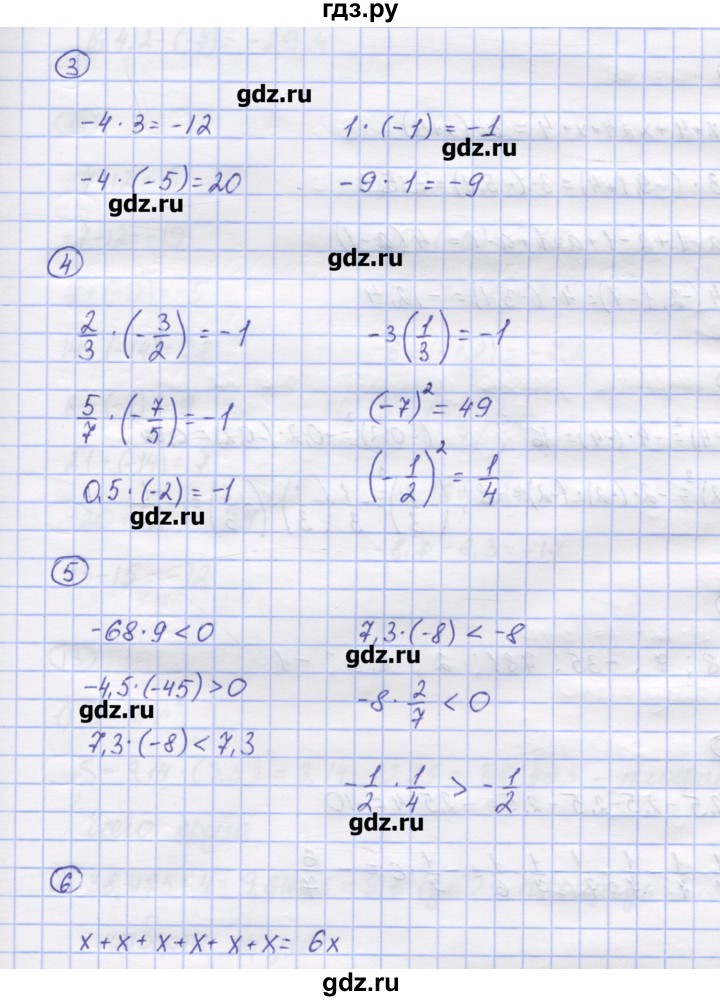 гдз.ру
3
gdz.ru
-4 · 3 = -12
1 · (-1) = -1
gdz.ru
-4 · (-5) = 20
-9 : 1 = -9
gdz.ru
4
gdz.ru
2/3 · (-3/2) = -1
-3(1/3) = -1
5/7 · (-7/5) = -1
(-7)² = 49
0,5 · (-2) = -1
(-1/2)² = 1/4
gdz.ru
5
-68 · 9 < 0
7,3 · (-8) < -8
gdz.ru
-4,5 · (-45) > 0
-8 · 2/7 < 0
gdz.ru
7,3 · (-8) < 7,3
-1/2 · 1/4 > -1/2
gdz.ru
6
x + x + x + x + x + x = 6x
gdz.ru